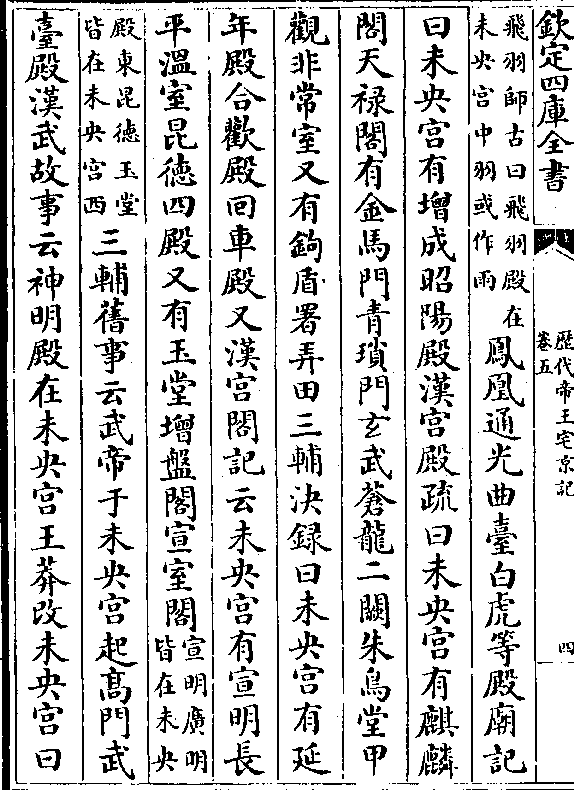 欽定四庫全書
歴代帝王宅京記
卷五
四
飛羽師古曰飛羽殿在
未央宮中羽或作雨
鳳凰通光曲臺白虎等殿廟記
曰未央宮有增成昭陽殿漢宮殿疏曰未央宮有麒麟
閣天禄閣有金馬門青瑣門玄武蒼龍二闕朱鳥堂甲
觀非常室又有鉤盾署弄田三輔決録曰未央宮有延
年殿合歡殿回車殿又漢宮閣記云未央宮有宣明長
平溫室昆徳四殿又有玉堂增盤閣宣室閣
宣明廣明
皆在未央
殿東昆徳玉堂
皆在未央宮西
三輔舊事云武帝于未央宮起高門武
臺殿漢武故事云神明殿在未央宮王莽改未央宮曰